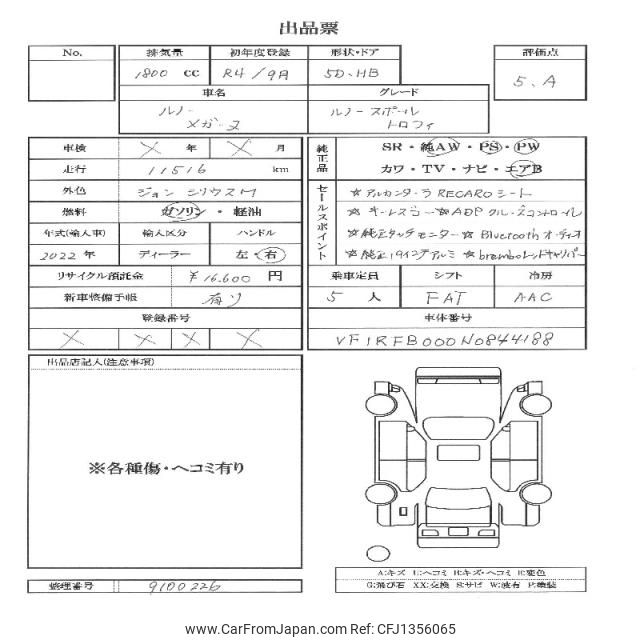 出品票
No. 排気量 初年度登録 形状・ドア 評価点
1800 cc R4/9月 5D.HB 5.A
車名 グレード
ルノー ルノースポール
メガーヌ トロフィ
車検 年 月 純正品 SR・純AW・PS・PW
走行 11516 km カワ・TV・ナビ・エアB
外色 ジョン シリウスM セールスポイント ☆アルカンターラRECAROシート
燃料 ガソリン・軽油 ☆キーレス ☆ADPクルーズコントロール
年式(輸入車) 輸入区分 ハンドル ☆純正タッチモニター ☆Bluetoothオーディオ
2022年 ディーラー 左・右 ☆純正19インチアルミ ☆bremboレッドキャリパー
リサイクル預託金 ¥16,600 円 乗車定員 シフト 冷房
新車整備手帳 有り 5 人 FAT AAC
登録番号 車体番号
X X X X VF1RFB000N0844188
出品店記入(注意事項)
※各種傷・ヘコミ有り
A:キズ U:ヘコミ B:キズ・ヘコミ
G:飛び石 XX:交換 S:サビ W:波有 P:塗装
整理番号 9100226
www.CarFromJapan.com CFJ1356065